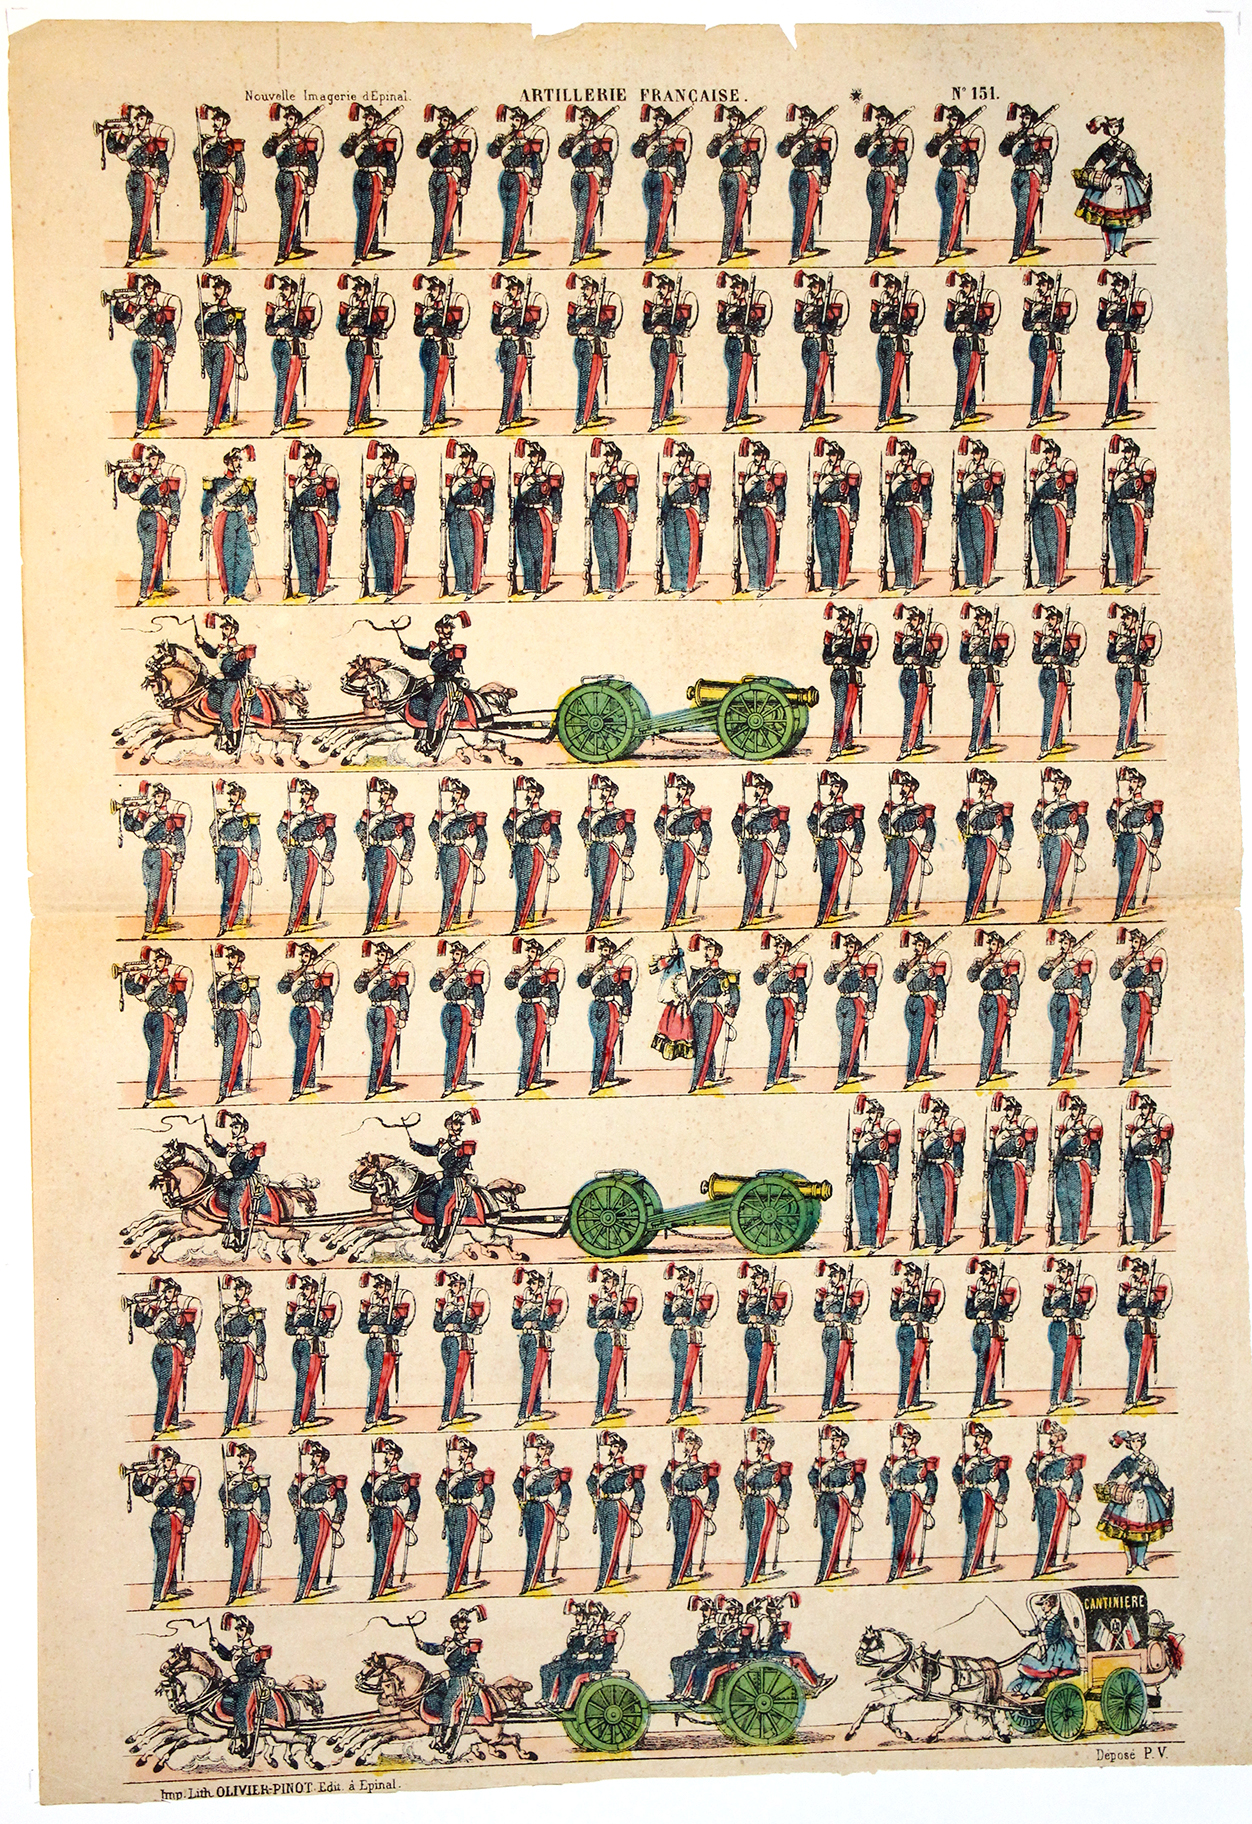 Nouvelle Imagerie d'Epinal. ARTILLERIE FRANÇAISE. N° 151.
CANTINIERE
Déposé P. V.
Imp. Lith. OLIVIER-PINOT. Edit. à Epinal.